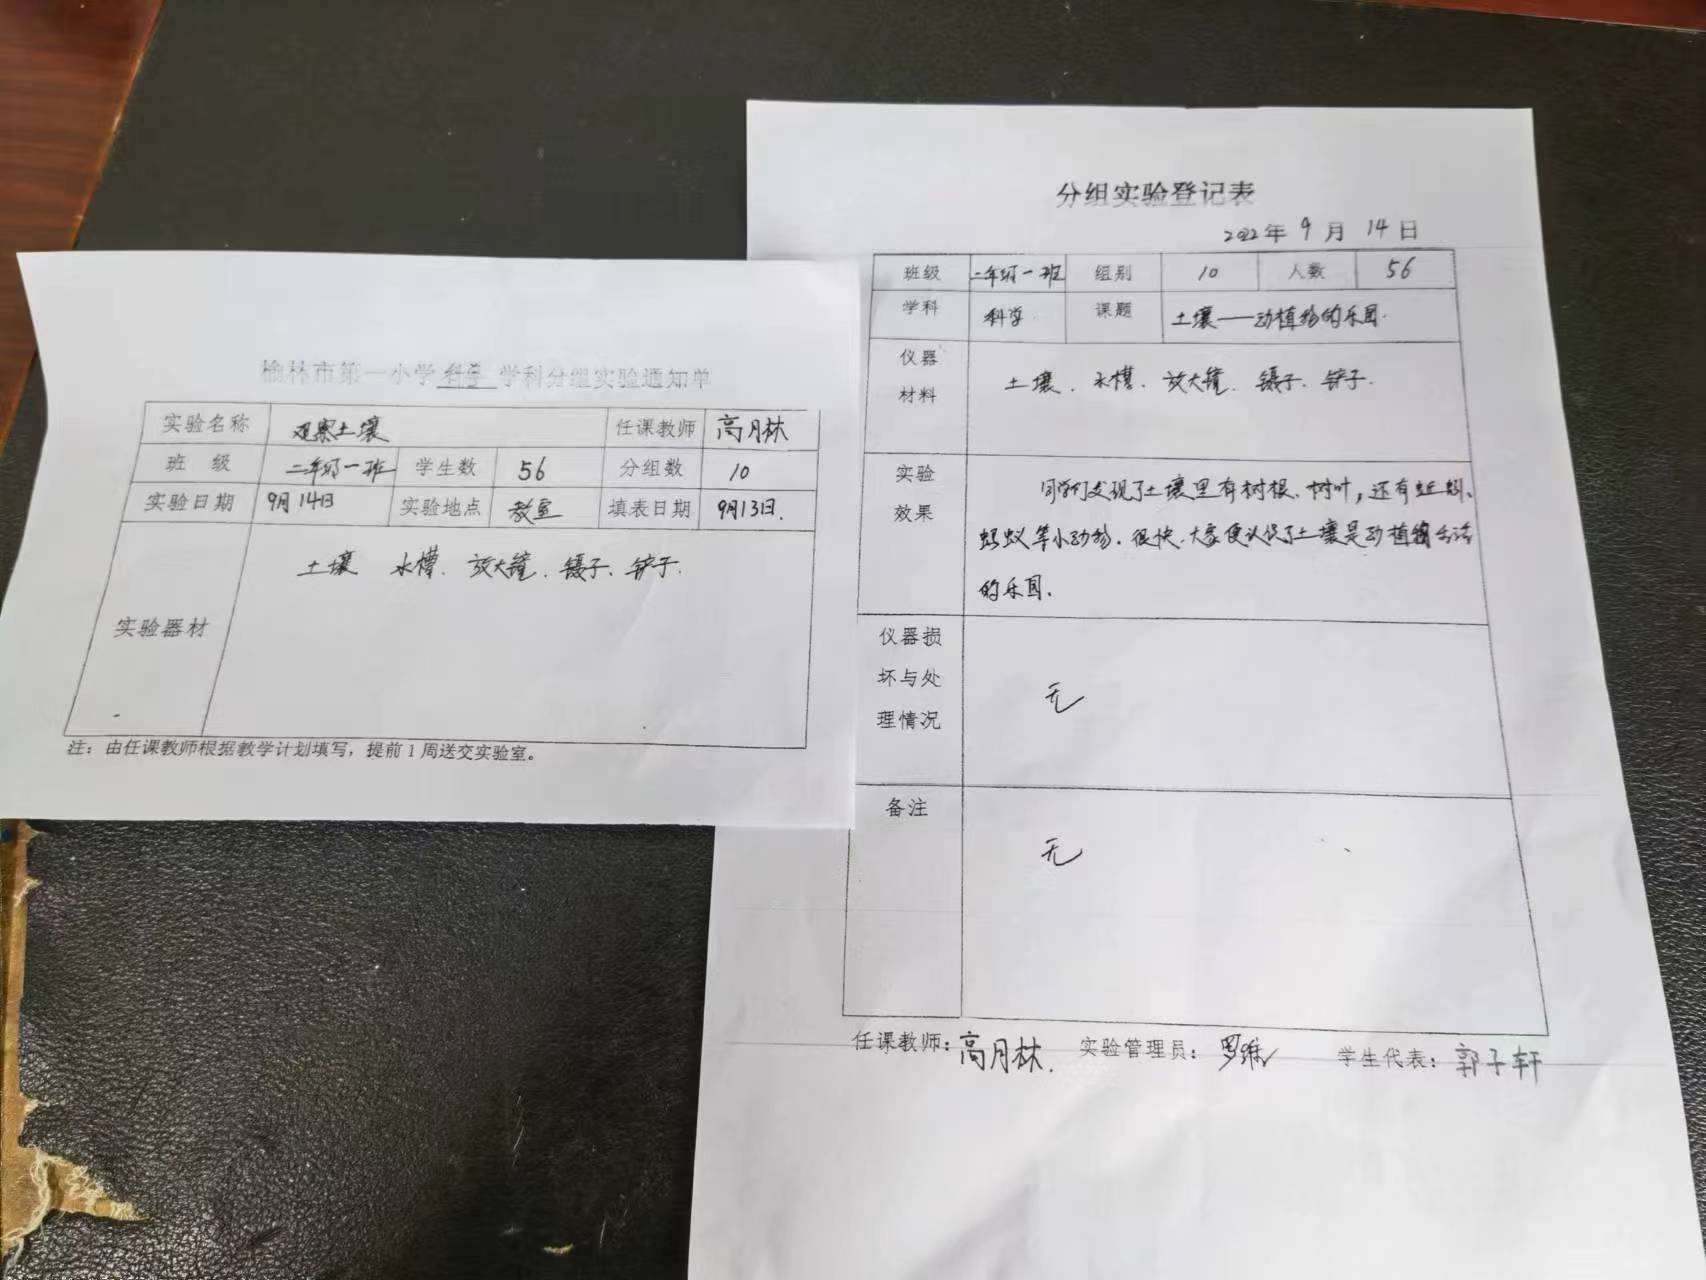 榆林市第一小学 科学 学科分组实验通知单
实验名称 观察土壤 任课教师 高月林
班 级 二年级一班 学生数 56 分组数 10
实验日期 9月14日 实验地点 教室 填表日期 9月13日.
实验器材 土壤 水槽、放大镜、镊子、铲子.
注：由任课教师根据教学计划填写，提前1周送交实验室。
分组实验登记表
2022年 9 月 14 日
班级 二年级一班 组别 10 人数 56
学科 科学 课题 土壤——动植物的乐园.
仪器
材料
土壤、水槽、放大镜、镊子、铲子.
实验
效果
同学们发现了土壤里有树根、树叶，还有蚯蚓、
蚂蚁等小动物.很快.大家便认识了土壤是动植物生活
的乐园.
仪器损
坏与处
理情况
无
备注
无
任课教师：高月林. 实验管理员：罗维 学生代表：郭子轩